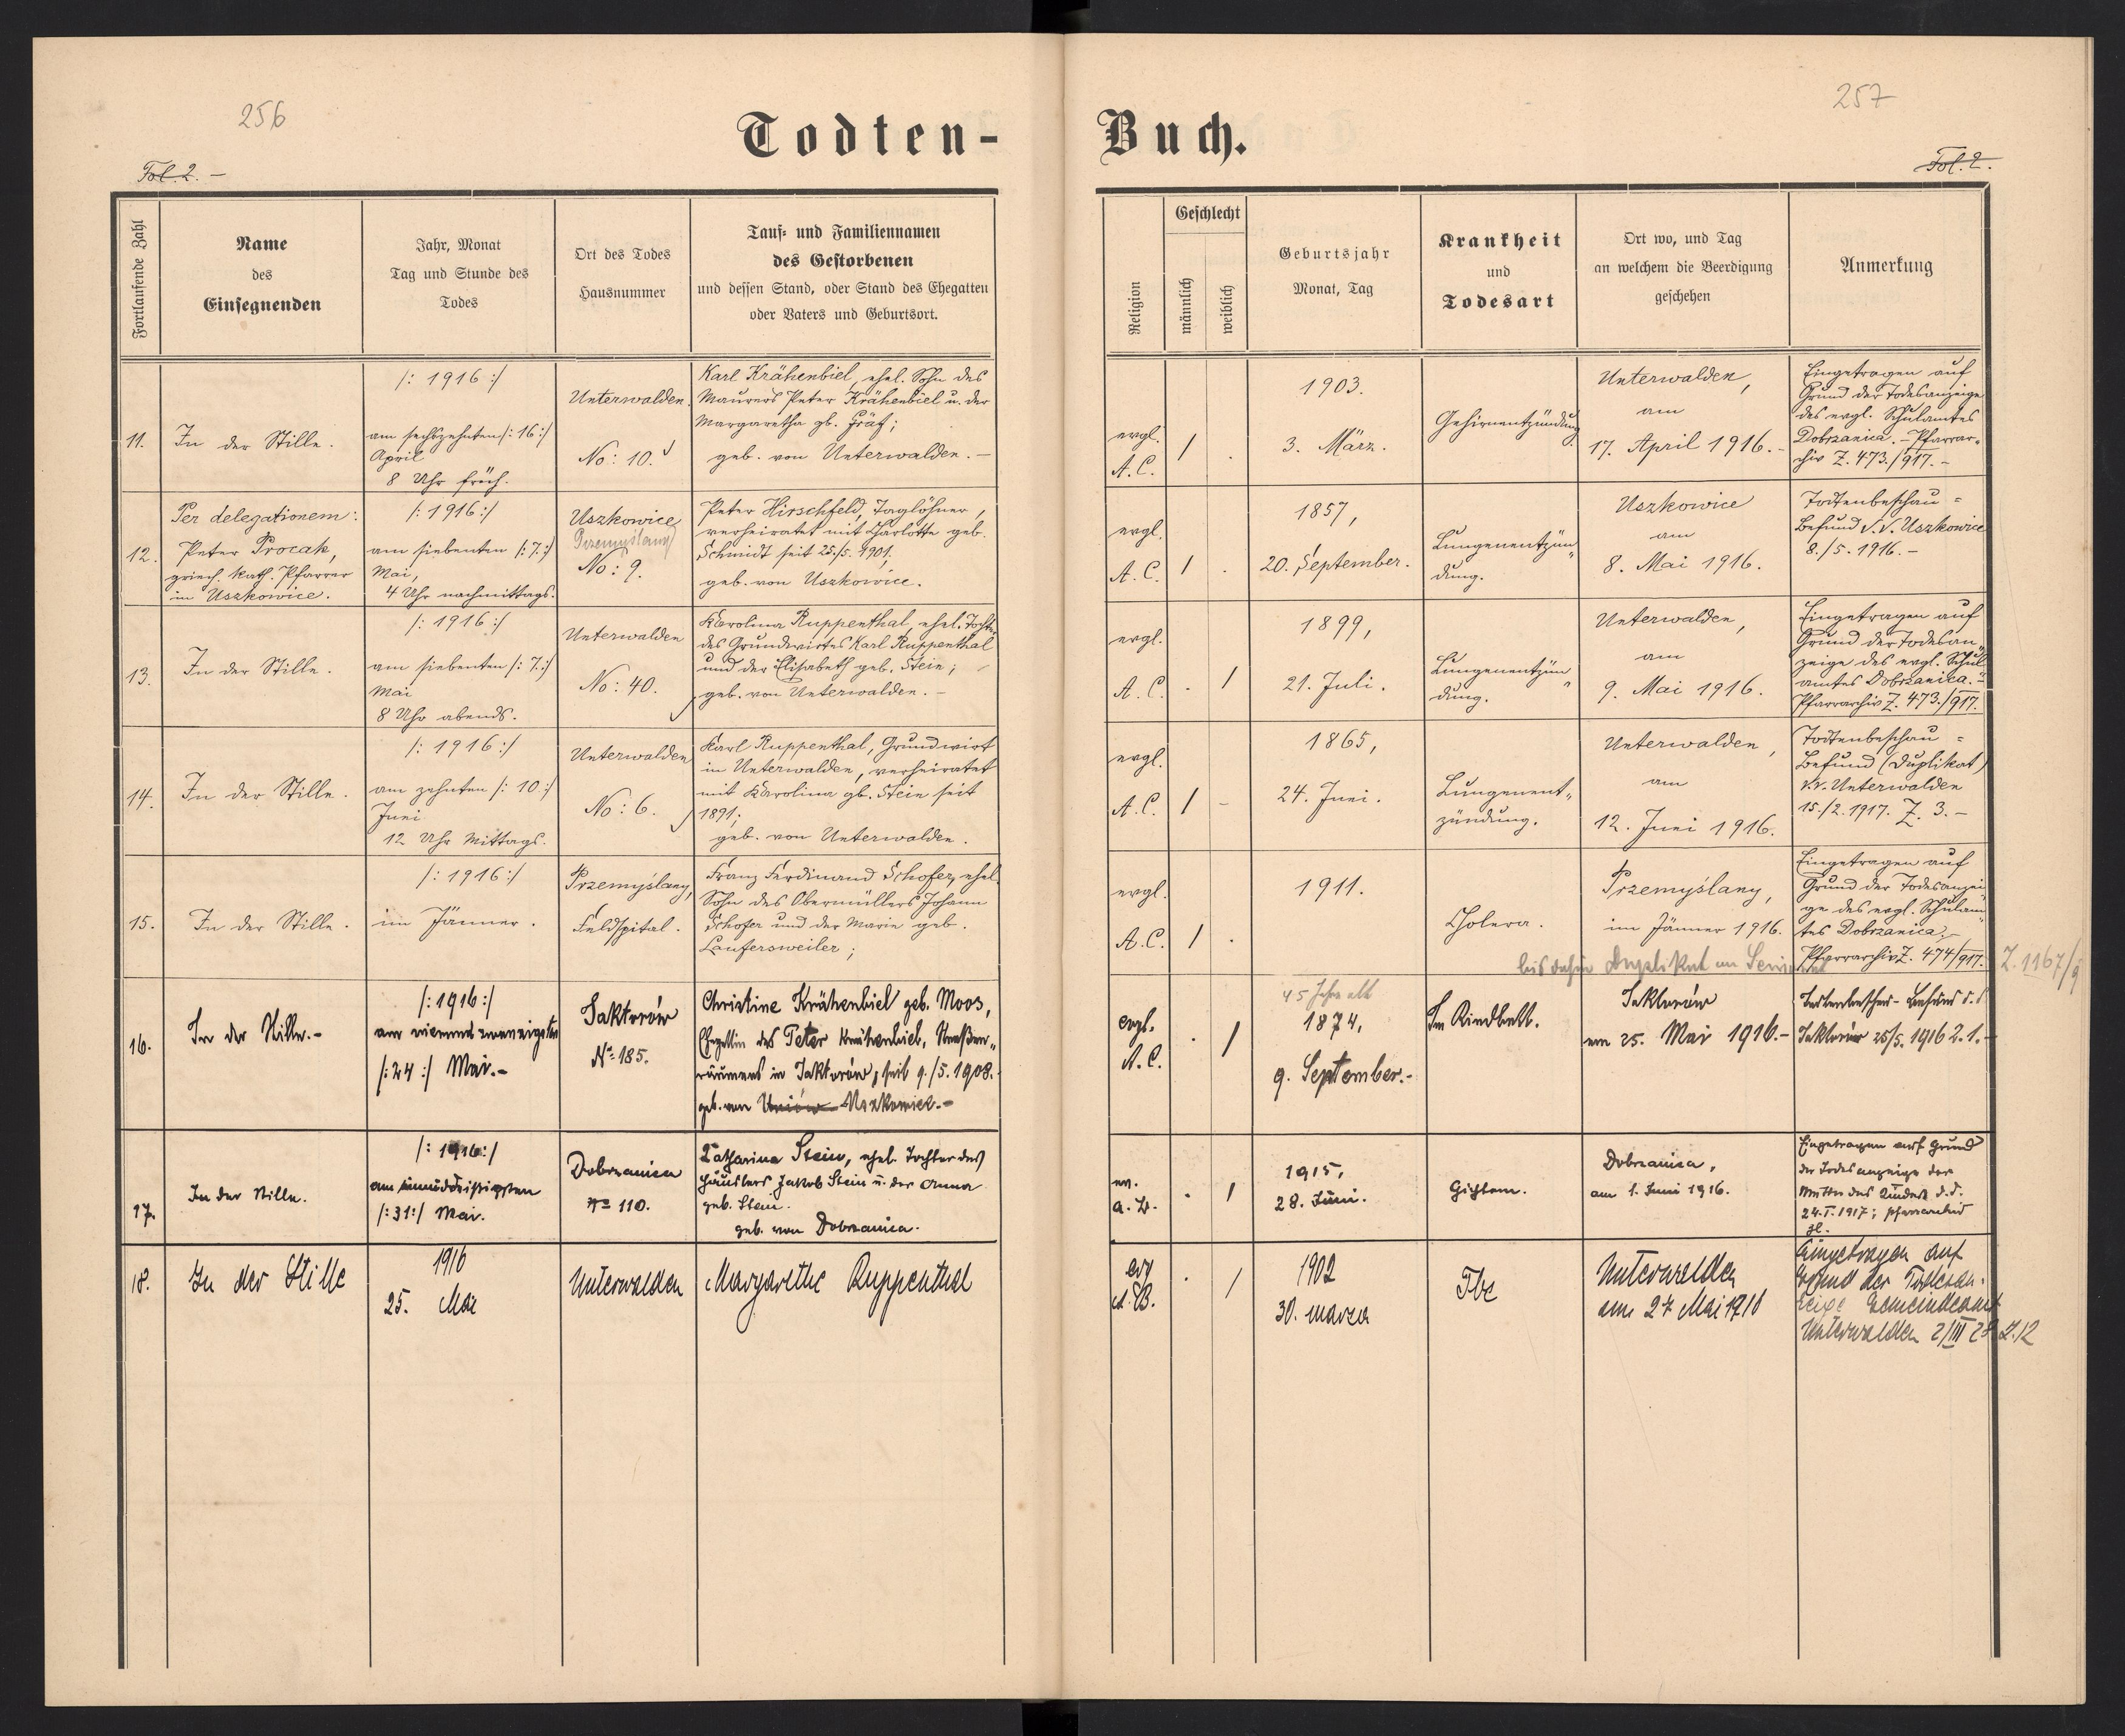 256
257
Todten-
Buch.
Fol. 2. -
Fol. 2.
Fortlaufende Zahl
Name
des
Einsegnenden
Jahr, Monat
Tag und Stunde des
Todes
Ort des Todes
Hausnummer
Tauf- und Familiennamen
des Gestorbenen
und dessen Stand, oder Stand des Ehegatten
oder Vaters und Geburtsort.
Religion
Geschlecht
männlich
weiblich
Geburtsjahr
Monat, Tag
Krankheit
und
Todesart
Ort wo, und Tag
an welchem die Beerdigung
geschehen
Anmerkung
11.
In der Stille.
/: 1916 :/
am sechszehnten /: 16 :/
April
8 Uhr früh.
Unterwalden.
No: 10.
Karl Krähenbiel, ehel. Sohn des
Maurers Peter Krähenbiel u. der
Margaretha gb. Gräf;
geb. von Unterwalden. -
evgl.
A.C.
/ .
1903.
3. März.
Gehirnentzündung
Unterwalden,
am
17. April 1916. -
Eingetragen auf
Grund der Todesanzeige
des evgl. Schulamtes
Dobrzanica. - Pfarrar-
chiv Z. 473./917. -
12.
Per delegationem:
Peter Procak,
griech. kath. Pfarrer
in Uszkowice.
/: 1916 :/
am siebenten /: 7. :/
Mai,
4 Uhr nachmittags.
Uszkowice
Przemyślany
No: 9.
Peter Hirschfeld, Taglöhner,
verheiratet mit Charlotte geb.
Schmidt seit 25./5. 1901,
geb. von Uszkowice.
evgl.
A.C.
/ .
1857,
20. September.
Lungenentzün„
dung.
Uszkowice
am
8. Mai 1916.
Todtenbeschau =
Befund v. V. Uszkowice
8./5. 1916. -
13.
In der Stille.
/: 1916 :/
am siebenten /: 7. :/
Mai
8 Uhr abends.
Unterwalden
No: 40.
Karolina Ruppenthal, ehel. Tochter
des Grundwirtes Karl Ruppenthal
und der Elisabeth geb. Stein;
geb. von Unterwalden. -
evgl.
A.C.
. /
1899,
21. Juli.
Lungenentzün„
dung.
Unterwalden,
am
9. Mai 1916.
Eingetragen auf
Grund der Todesan„
zeige des evgl. Schul„
amtes Dobrzanica. -
Pfarrarchiv Z. 473./917.
14.
In der Stille.
/: 1916 :/
am zehnten /: 10 :/
Juni
12 Uhr Mittags.
Unterwalden
No: 6.
Karl Ruppenthal, Grundwirt
in Unterwalden, verheiratet
mit Karolina gb. Stein seit
1891;
geb. von Unterwalden.
evgl.
A.C.
/ -
1865,
24. Juni.
Lungenent„
zündung.
Unterwalden,
am
12. Juni 1916.
Todtenbeschau =
Befund (Duplikat)
v. V. Unterwalden
15./2. 1917. Z. 3. -
15.
In der Stille.
/: 1916 :/
im Jänner.
Przemyślany,
Feldspital.
Franz Ferdinand Schofer, ehel.
Sohn des Obermüllers Johann
Schofer und der Marie geb.
Laufersweiler;
evgl.
A.C.
/ .
1911.
Cholera.
Przemyślany,
im Jänner 1916.
Eingetragen auf
Grund der Todesanzei„
ge des evgl. Schulam„
tes Dobrzanica. -
Pfarrarchiv Z. 474/917.
Duplikat
Z. 1167/9
16.
In der Stille. -
/: 1916 :/
am vierundzwanzigsten
/: 24 :/ Mai. -
Jaktorów
No 185.
Christine Krähenbiel geb. Moos,
Ehegattin des Peter Krähenbiel, Straßen„
räumers in Jaktorów, seit 9./5. 1908.
geb. von Uniów Uszkowice. -
evgl.
A.C.
. /
45 Jahre alt
1874,
9. September. -
Im Kindbett.
Jaktorów
am 25. Mai 1916. -
Todtenbeschau-Befund d.d.
Jaktorów 25/5. 1916 Z. 1. -
17.
In der Stille.
/: 1916 :/
am einunddreißigsten
/: 31 :/ Mai.
Dobrzanica
No 110.
Katharina Stein, ehel. Tochter des
Häuslers Jakob Stein u. der Anna
geb. Stein.
geb. von Dobrzanica.
ev.
A. B.
. /
1915,
28. Juni.
Gichtern.
Dobrzanica,
am 1. Juni 1916.
Eingetragen auf Grund
der Todesanzeige der
Mutter des Kindes d.d.
24.I.1917; Pfarrarchiv
18.
In der Stille
1916
25. Mai
Unterwalden
Margarethe Ruppenthal
evg
A. B.
. /
1902
30. marca
Tbc
Unterwalden
am 27 Mai 1916
Eingetragen auf
Grund der Todesan-
zeige Gemeindeamt
Unterwalden 2/III 28 Z. 12